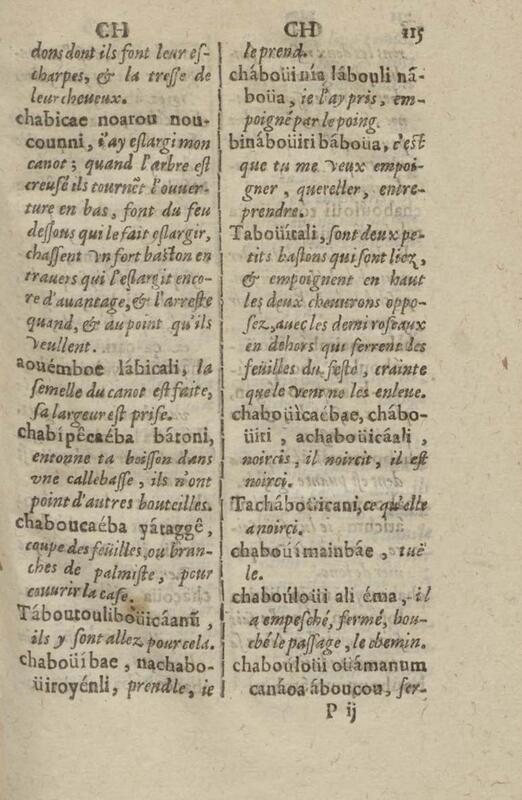 CH
dons dont ils font leur es-
charpes, & la tresse de
leur cheueux.
chabicae noarou nou-
counni, i'ay eslargi mon
canot ; quand l'arbre est
creusé ils tournẽt l'ouuer-
ture en bas, font du feu
dessous qui le fait eslargir,
chassent vn fort baston en
trauers qui l'eslargit enco-
re d'auantage, & l'arreste
quand, & au point qu'ils
veullent.
aouémboe lábicali, la
semelle du canot est faite,
sa largeur est prise.
chabípêcaéba bátoni,
entonne ta boisson dans
vne callebasse, ils n'ont
point d'autres bouteilles.
chaboucaéba yátaggê,
coupe des feüilles, ou bran-
ches de palmiste, pour
couurir la case.
Táboutouliboüicáanũ,
ils y sont allez pour cela.
chaboüíbae, nachabo-
üiroyénli, prendle, ie
CH 115
le prend.
cháboüinía lábouli nã-
boüa, ie l'ay pris, em-
poigné par le poing.
bináboüiti báboüa, c'est
que tu me veux empoi-
gner, quereller, entre-
prendre.
Taboüítali, sont deux pe-
tits bastons qui sont liez,
& empoignent en haut
les deux cheuurons oppo-
sez, auec les demi roseaux
en dehors qui serrent les
feüilles du feste, crainte
que le vent ne les enleue.
chaboüìcaébae, chábo-
üiti, achaboüicáali,
noircis, il noircit, il est
noirci.
Tacháboüicani, ce qu'elle
a noirci.
chaboüímainbáe, tuë
le.
chaboúloüi ali éma, il
a empesché, fermé, bou-
ché le passage, le chemin.
chaboúloüi oüámanum
canáoa áboucou, fer-
P ij